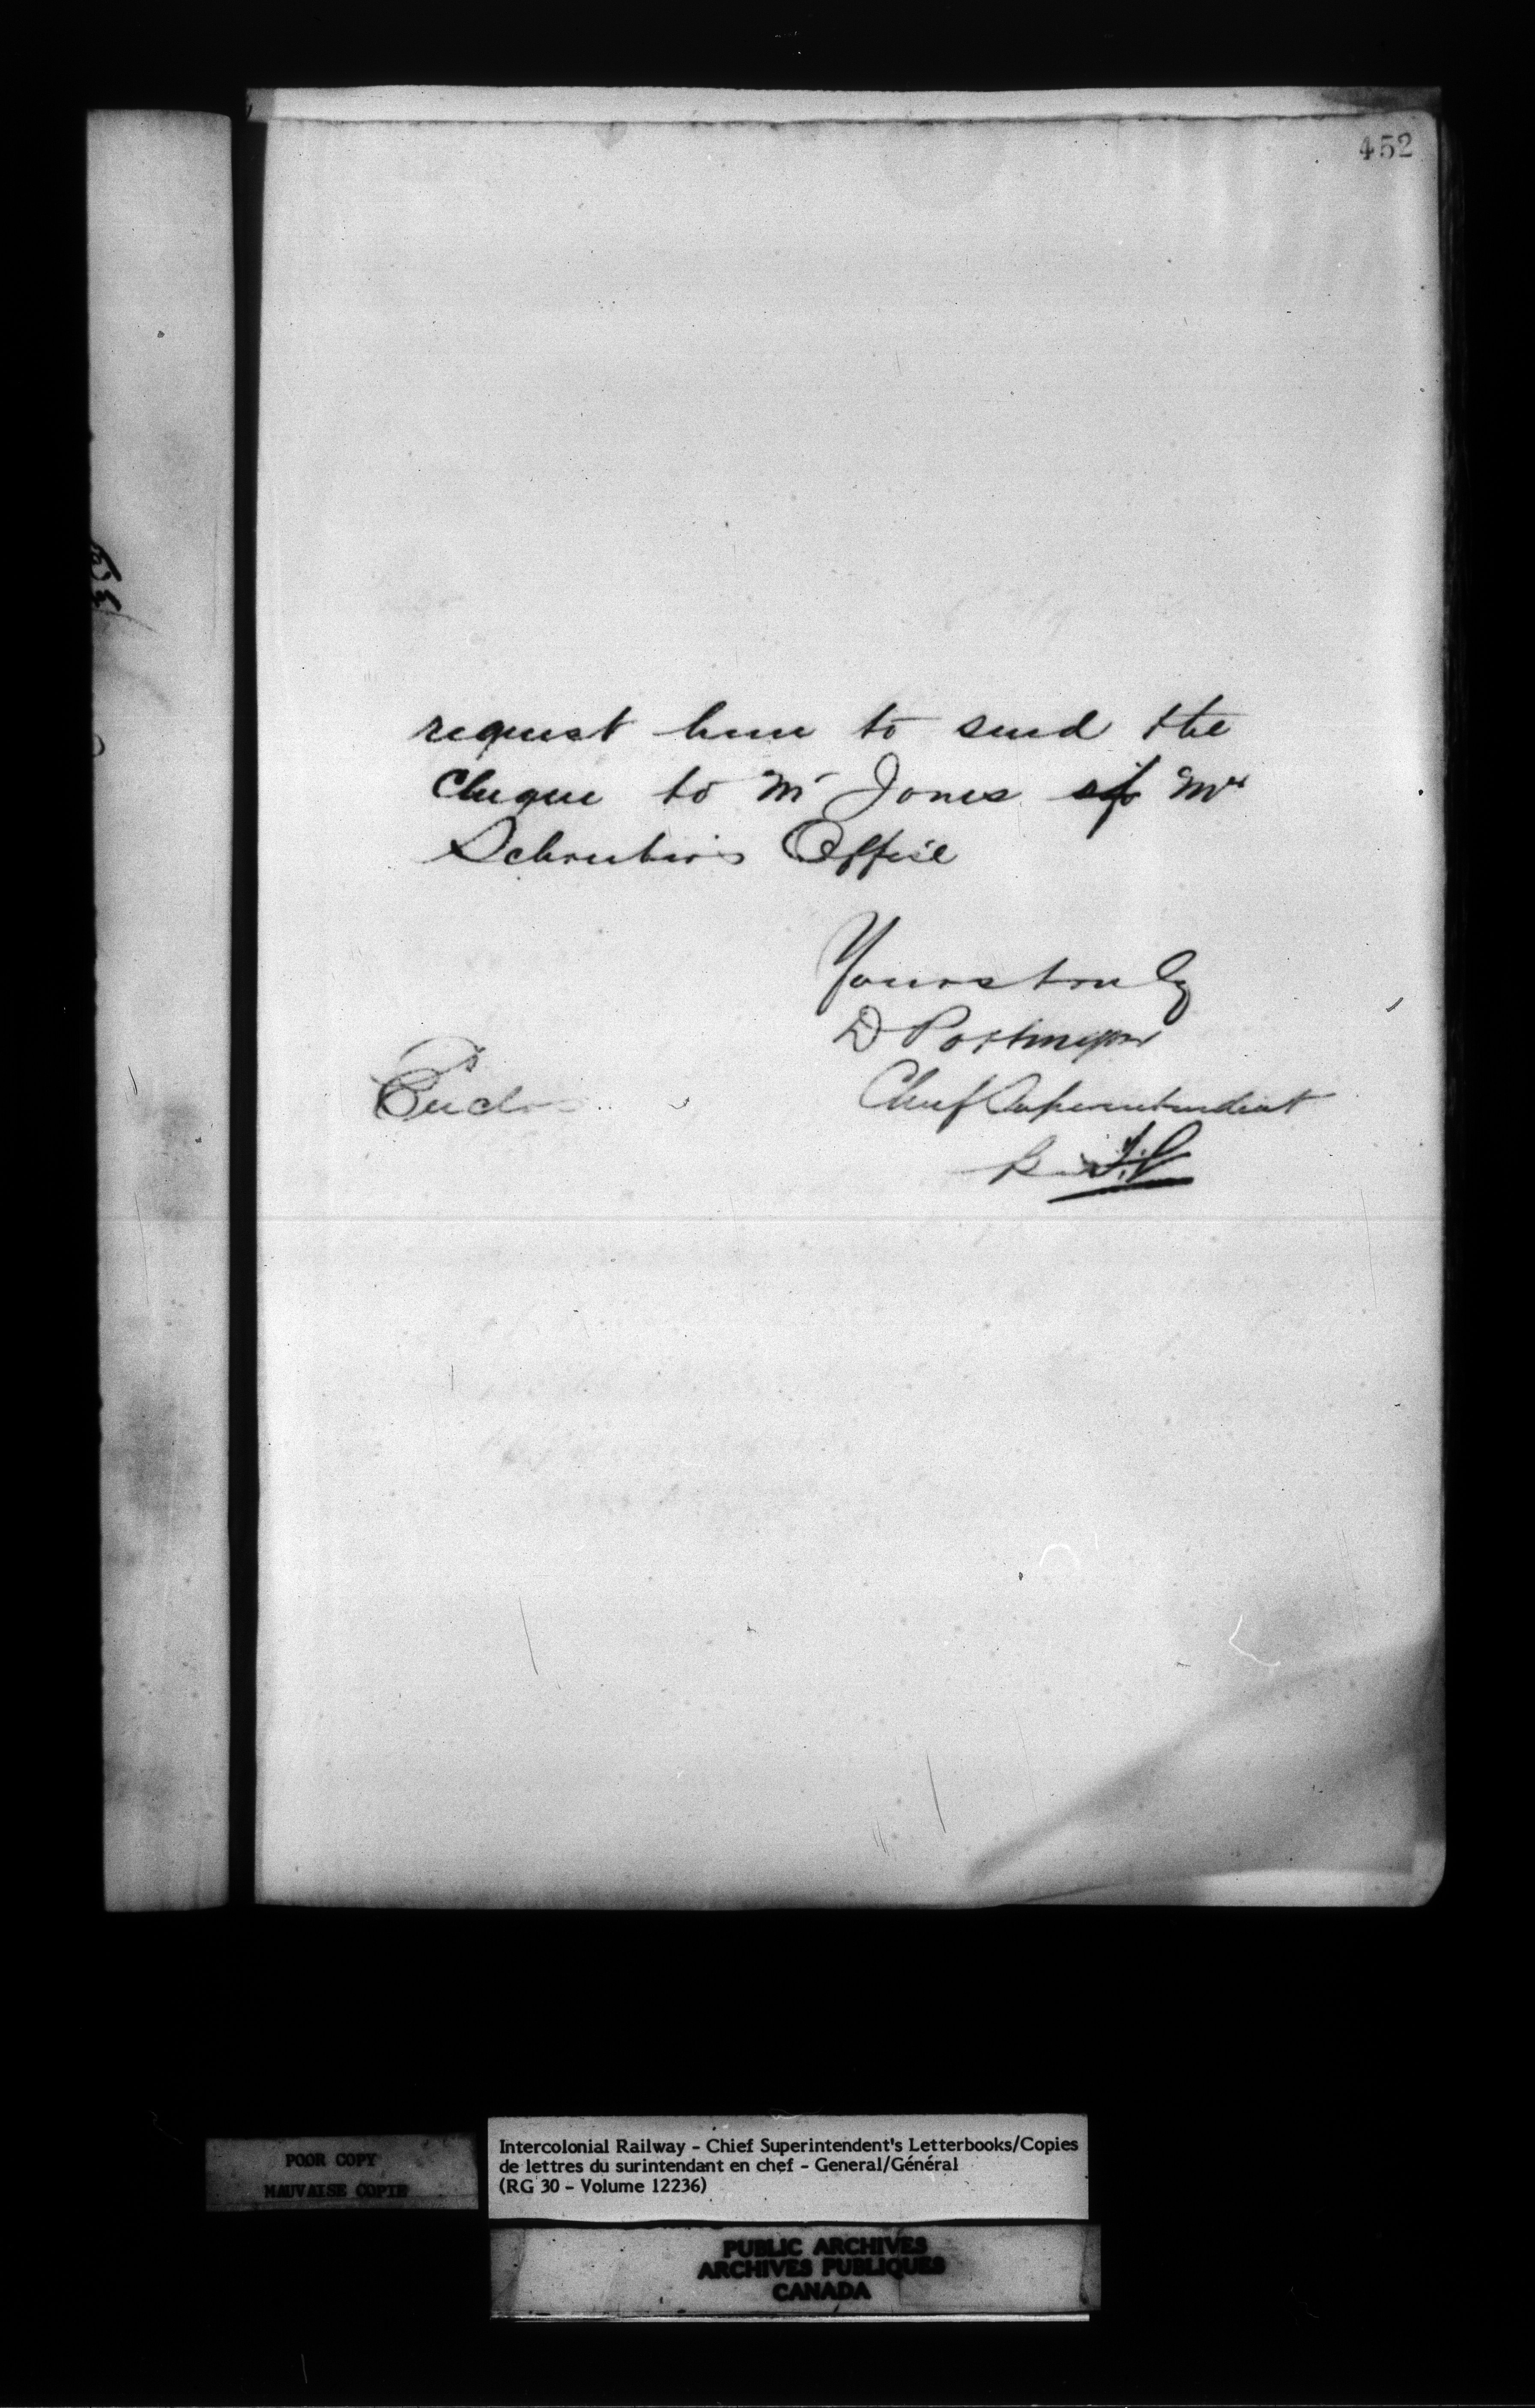 452
request him to send the
Cheque to Mr Jones of Mr
Schreiber's Office
Yours truly
D Pottinger
Chief Superintendent
Enclos
POOR COPY
MAUVAISE COPIE
Intercolonial Railway - Chief Superintendent's Letterbooks/Copies
de lettres du surintendant en chef - General/Général
(RG 30 - Volume 12236)
PUBLIC ARCHIVES
ARCHIVES PUBLIQUES
CANADA